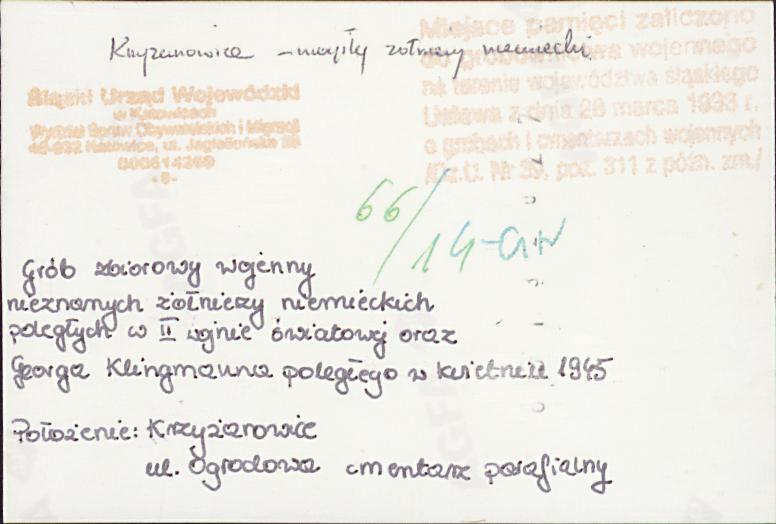 Krzyżanowice – mogiły żołnierzy niemieckich
Śląski Urząd Wojewódzki
w Katowicach
Wydział Spraw Obywatelskich i Migracji
40-032 Katowice, ul. Jagiellońska 25
000514269
-8-
Miejsce pamięci zaliczono
do grobownictwa wojennego
na terenie województwa śląskiego
Ustawa z dnia 28 marca 1933 r.
o grobach i cmentarzach wojennych
/Dz.U. Nr 39, poz. 311 z późn. zm./
66/14-GN
Grób zbiorowy wojenny
nieznanych żołnierzy niemieckich
poległych w II wojnie światowej oraz
Georga Klingmanna poległego w kwietniu 1945
Położenie: Krzyżanowice
ul. Ogrodowa cmentarz parafialny